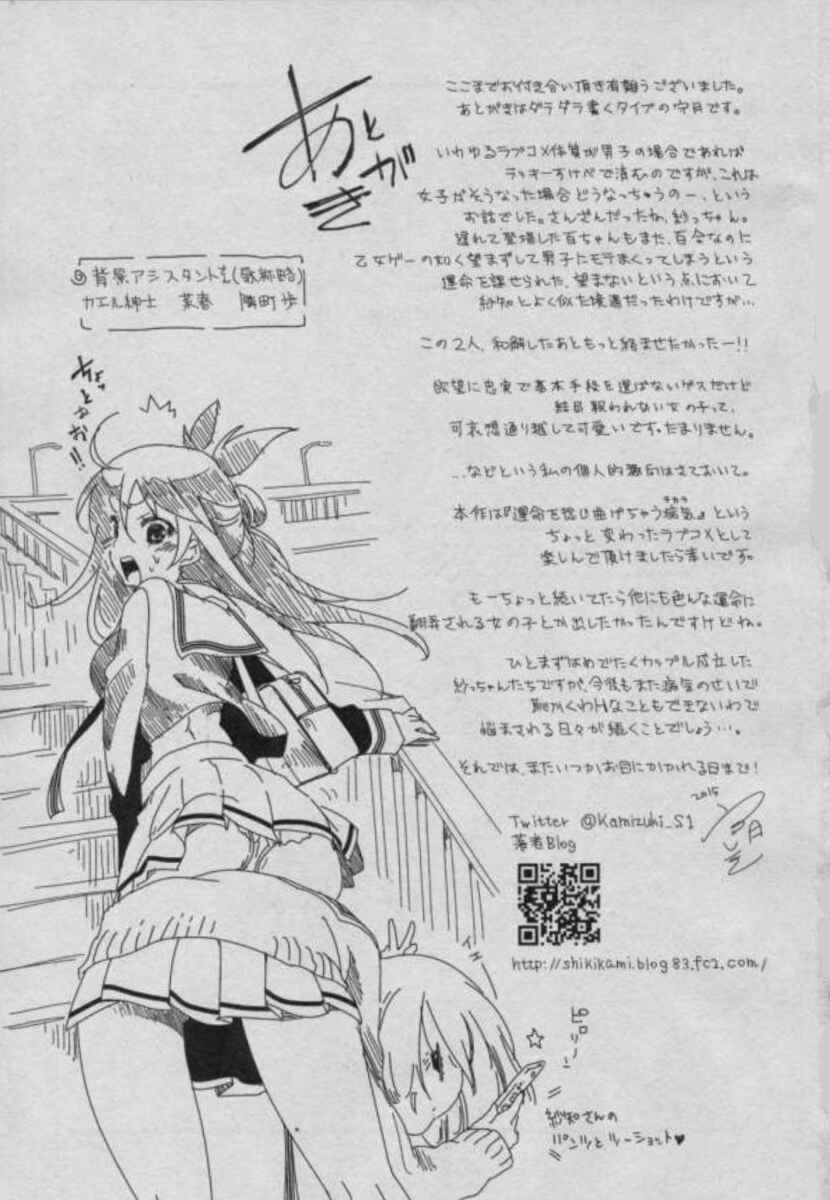 あとがき
ここまでお付き合い頂き有難うございました。
あとがきはダラダラ書くタイプの宇月です。
いわゆるラブコメ体質が男子の場合であれば
ラッキーすけべで済むのですが、これは
女子がそうなった場合どうなっちゃうのー、という
お話でした。さんざんだったね、紗っちゃん。
遅れて登場した百ちゃんもまた、百合なのに
乙女ゲーの如く望まずして男子にモテまくってしまうという
運命を課せられた、望まないという点において
紗知とよく似た境遇だったわけですが…
この2人、和解したあともっと絡ませたかったー!!
欲望に忠実で基本手段を選ばないゲスだけど
結局報われない女の子って、
可哀想通り越して可愛いです。たまりません。
…などという私の個人的趣向はさておいて。
本作は『運命を捻じ曲げちゃう病気』という
チカラ
ちょっと変わったラブコメとして
楽しんで頂けましたら幸いです。
もーちょっと続いてたら他にも色んな運命に
翻弄される女の子とか出したかったんですけどね。
ひとまずはめでたくカップル成立した
紗っちゃんたちですが、今後もまた病気のせいで
悩まされる日々が続くことでしょう…。
それでは、またいつかお目にかかれる日まで!
2015
Twitter @Kamizuki_S1
著者Blog
http://shikikami.blog83.fc2.com/
◎背景アシスタント(敬称略)
カエル紳士 菜春 隣町歩
ちょっとかお!!
イエー
ピローン
紗知さんの
パンツとツーショット♥